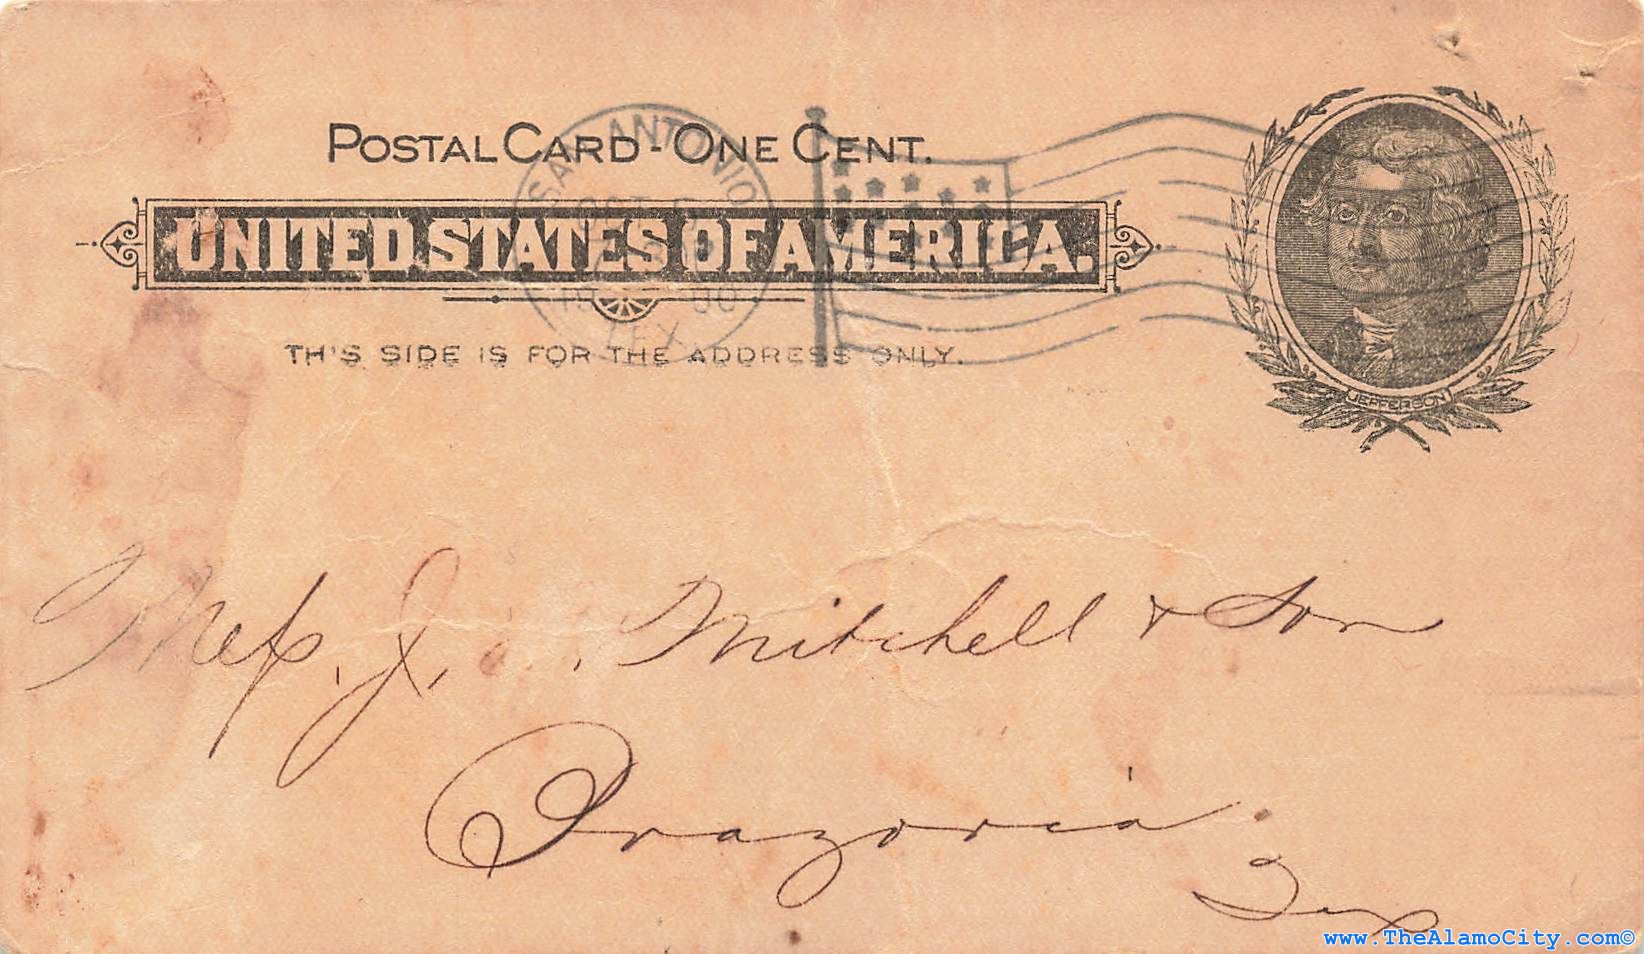 POSTAL CARD - ONE CENT.
UNITED STATES OF AMERICA.
TH'S SIDE IS FOR THE ADDRESS ONLY.
SAN ANTONIO
OCT
19 00
TEX
JEFFERSON
Mess. J. Mitchell & Son
Brazoria
Tex
www.TheAlamoCity.com©